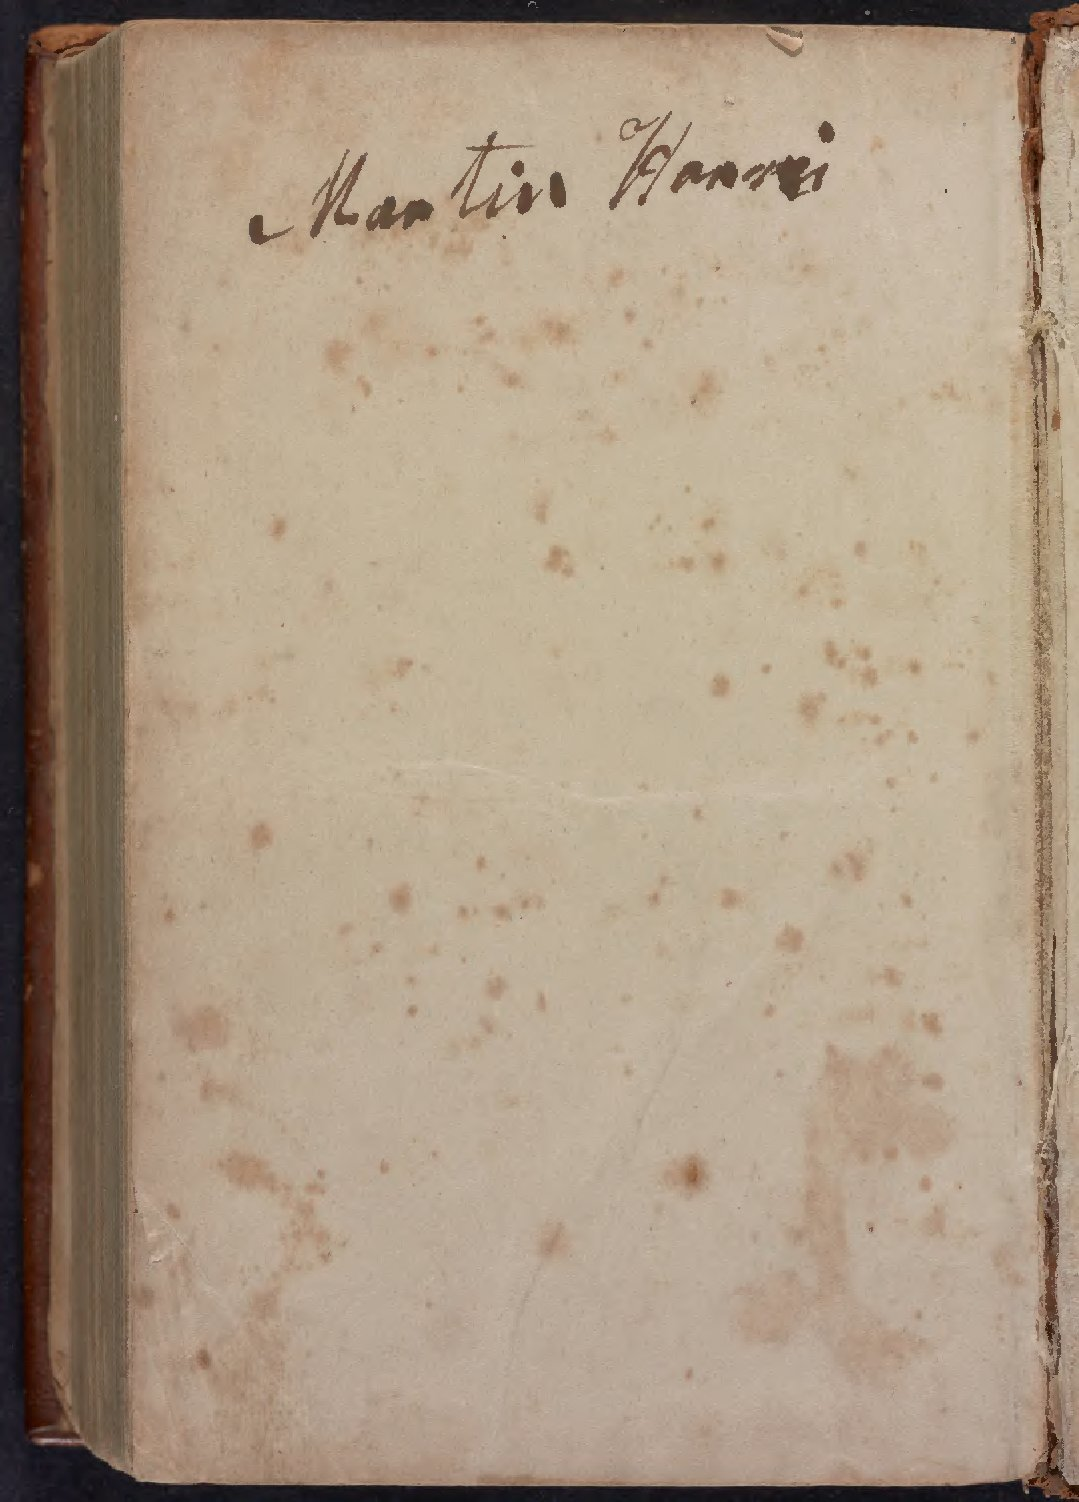 Martin Harris